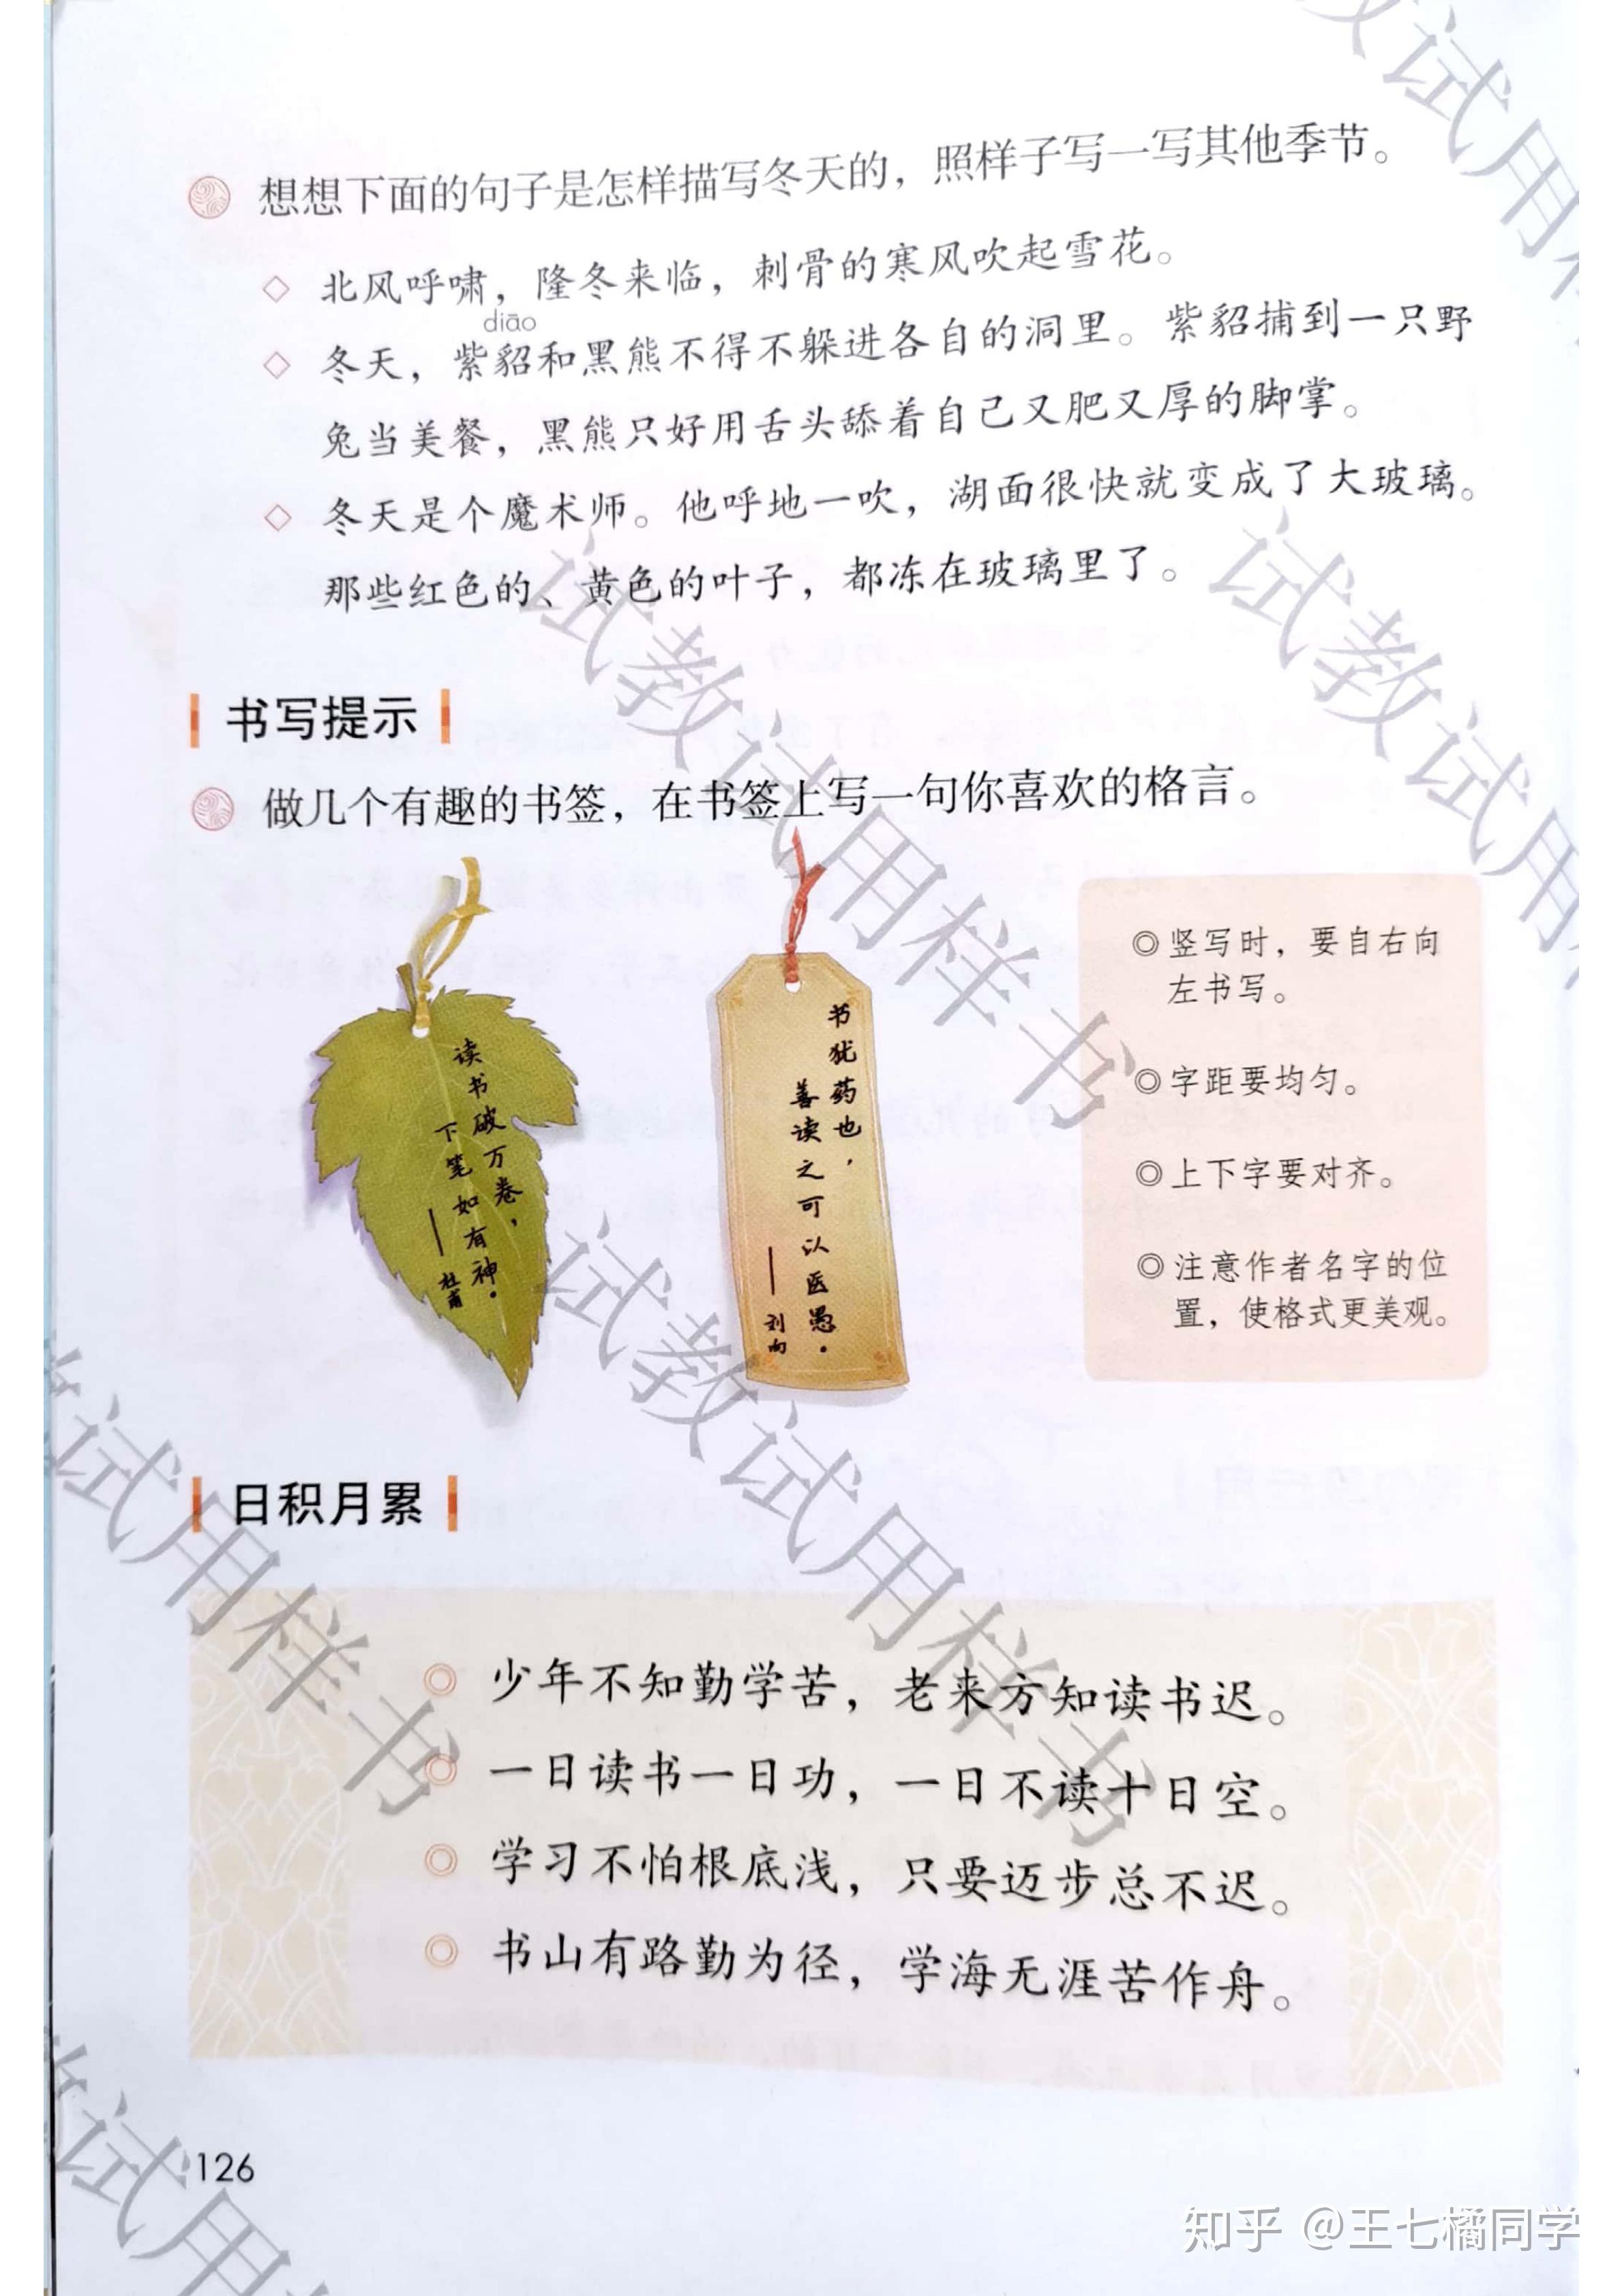 想想下面的句子是怎样描写冬天的，照样子写一写其他季节。
北风呼啸，隆冬来临，刺骨的寒风吹起雪花。
diāo
冬天，紫貂和黑熊不得不躲进各自的洞里。紫貂捕到一只野
兔当美餐，黑熊只好用舌头舔着自己又肥又厚的脚掌。
冬天是个魔术师。他呼地一吹，湖面很快就变成了大玻璃。
那些红色的、黄色的叶子，都冻在玻璃里了。
书写提示
做几个有趣的书签，在书签上写一句你喜欢的格言。
读书破万卷，
下笔如有神。
——杜甫
书犹药也，
善读之可以医愚。
——刘向
◎竖写时，要自右向
左书写。
◎字距要均匀。
◎上下字要对齐。
◎注意作者名字的位
置，使格式更美观。
日积月累
◎少年不知勤学苦，老来方知读书迟。
◎一日读书一日功，一日不读十日空。
◎学习不怕根底浅，只要迈步总不迟。
◎书山有路勤为径，学海无涯苦作舟。
126
试教试用样书
试教试用样书
试教试用样书
试教试用样书
知乎 @王七橘同学